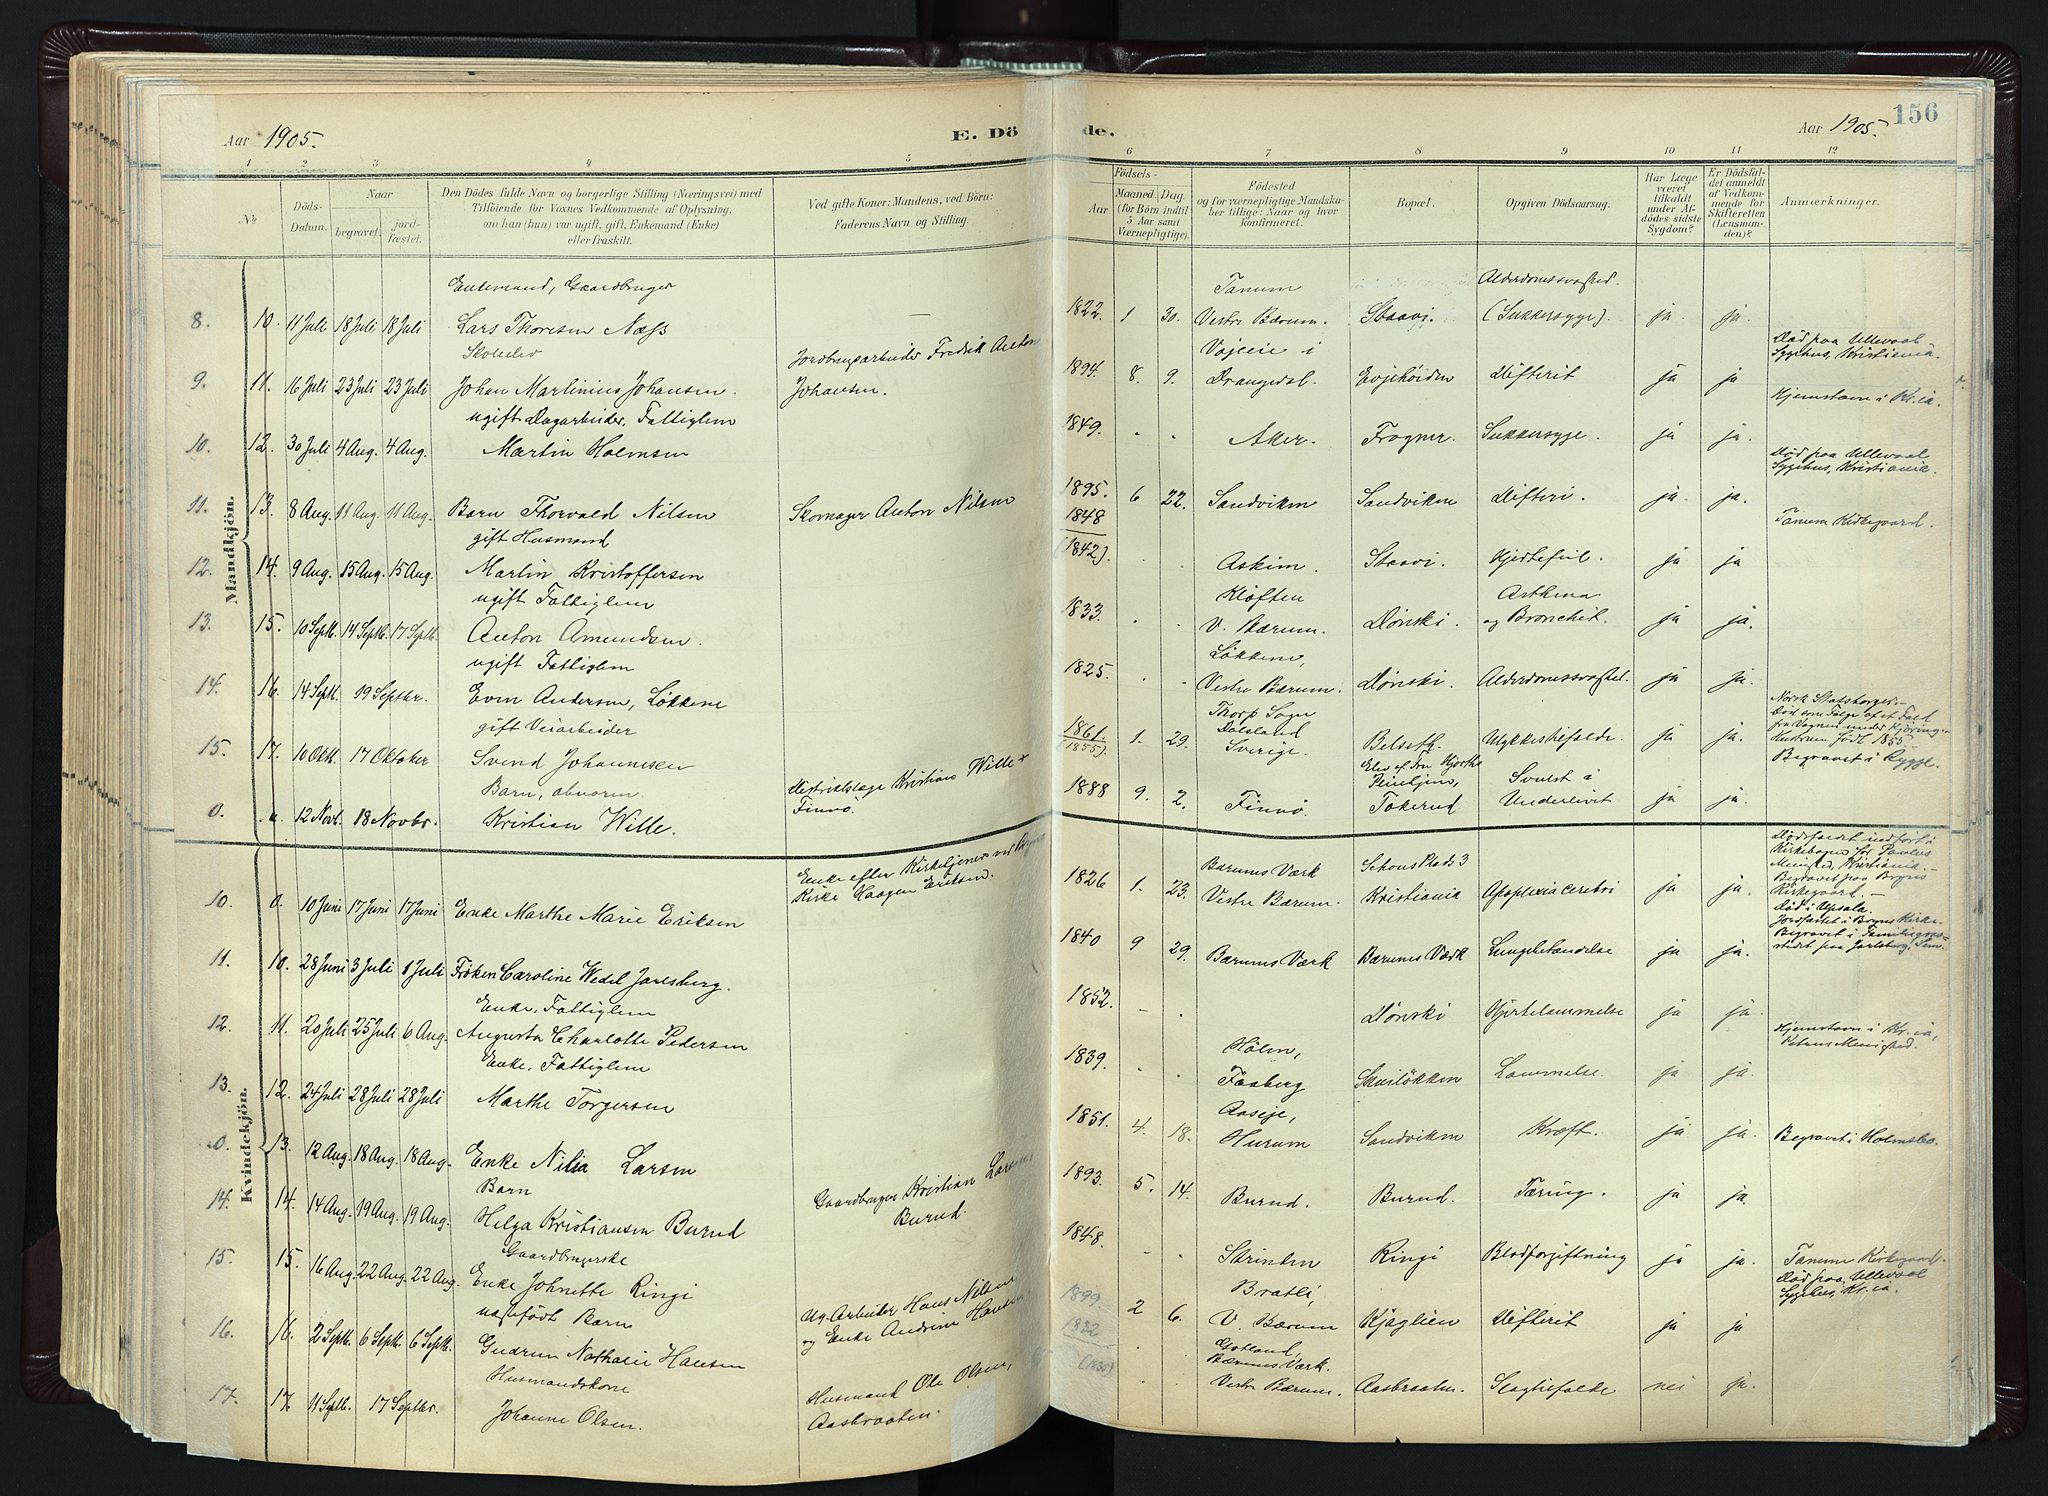 156
Aar 1905.
E. Dö
de.
Aar 1905.
1 2 3 4 5 6 7 8 9 10 11 12
No
Döds-
Datum.
Naar
begravet.
jord-
fæstet.
Den Dödes fulde Navn og borgerlige Stilling (Næringsvei) med
Tilföiende for Voxnes Vedkommende af Oplysning,
om han (hun) var ugift, gift, Enkemand (Enke)
eller fraskilt.
Ved gifte Koner: Mandens, ved Börn:
Faderens Navn og Stilling.
Födsels-
Aar
Maaned. Dag.
(for Börn indtil
5 Aar samt
Værnepligtige).
Födested
og for værnepligtige Mandsku-
ber tillige: Naar og hvor
konfirmeret.
Bopæl.
Opgiven Dödsaarsag.
Har Læge
været
tilkaldt
under Af-
dödes sidste
Sygdom?
Er Dödsfal-
det anmeldt
af Vedkom-
mende for
Skifteretten
(Lensman-
den)?
Anmærkninger.
Mandkjön.
Enkemand, Gaardbruger Tanum Alderdomssvaghed.
8. 10. 11 Juli 18 Juli 18 Juli Lars Thoresen Næss — 1822. 1 30. Vestre Bærum. Staavi. (Sukkersyge). ja. ja.
Skoleelev Jordbrugsarbeider Fredrik Anton Vojeie i Död paa Ullevaal Sygehus, Kristiania.
9. 11. 16 Juli 23 Juli 23 Juli Johan Martinius Johansen. Johansen. 1894. 8. 9. Drangedal. Evjehöiden Difterit ja ja
ugift Dagarbeider, Fattiglem Hjemstavn i Kr.ia.
10. 12. 30 Juli 4 Aug. 4 Aug. Martin Holmsen 1849. " " Aker. Frogner. Sukkersyge. ja ja.
Död paa Ullevaal
Sygehus, Kristiania.
11. 13. 8 Aug. 11 Aug. 11 Aug. Barn Thorvald Nilsen Skomager Anton Nilsen 1895. 6 22. Sandviken Sandviken Difteri. ja. ja.
gift Husmand 1848 Tanum Kirkegaard.
12. 14. 9 Aug. 15 Aug. 15 Aug. Martin Kristoffersen (1842). " " Askim. Staavi. Hjertefeil. ja ja
ugift Fattiglem Klöften Asthma
13. 15. 10 Septb. 14 Septb. 17 Septb. Anton Amundsen. 1833. " " V. Bærum. Dönski. og Bronchit. ja ja.
ugift Fattiglem Lökkene,
14. 16. 14 Septb. 19 Septbr. Even Andersen, Lökkene 1825. " " Vestre Bærum. Dönski. Alderdomssvaghed. ja ja.
gift Veiarbeider Thorp Sogn Dalsland Norsk Statsborger.
Död som Fölge af et Fald
fra Vognen under Kjöring.
Hustruen född 1855.
15. 17. 10 Oktb. 17 Oktober Svend Johannesen 1861. (1855) 1. 29. Sverige. Belseth. Ulykkestilfælde. ja ja. Begravet i Rygge.
Barn, abnorm. Distriktslæge Kristian Wille Elev af Fru Hjorths Svulst i
0. 12 Novb. 18 Novbr. Kristian Wille. Finnö. 1888 9. 2. Finnö. Tokerud Underlivet ja ja.
Kvindekjön.
Enke efter Kirketjener ved Bryns Bærums Værk Schous Plads 3
10. 0. 10 Juni 17 Juni 17 Juni Enke Marthe Marie Eriksen Kirke Haagen Eriksen. 1826 1. 23. Vestre Bærum. Kristiania Apoplexia cerebri ja ja.
Dödsfaldet indfört i
Kirkebogen for Paulus
Menighed, Kristiania
Begravet paa Bryns
Kirkegaard. —
11. 10. 28 Juni 3 Juli 1 Juli Fröken Caroline Wedel Jarlsberg. 1840 9 29. Bærums Værk Bærums Værk Lungebetændelse ja ja.
Död i Upsala.
Jordfæstet i Bryns Kirke.
Begravet i Familiegrav-
stedet paa Jarlsberg, Sem.
Enke, Fattiglem
12. 11. 20 Juli 25 Juli 6 Aug. Augusta Charlotte Pedersen 1852. " " Dönski Hjertelammelse ja ja.
Hjemstavn i Kr.ia,
Petrus Menighed.
Enke, Fattiglem Holm,
13. 12. 24 Juli 28 Juli 28 Juli Marthe Torgersen 1839. " " Faaberg Skuilökken Lammelse. ja ja.
Aaseje,
0. 13. 12 Aug. 18 Aug. 18 Aug. Enke Nilia Larsen 1851. 4. 18. Hurum Sandviken Kræft. ja ja. Begravet i Holmsbo.
Barn Gaardbruger Kristian Larsen
14. 14. 14 Aug. 19 Aug. 19 Aug. Helga Kristiansen Burud Burud. 1893. 5. 14. Burud. Burud. Tæring. ja ja.
Gaardbrugerske
15. 15. 16 Aug. 22 Aug. 22 Aug. Enke Johnette Ringi 1848. " " Strinden Ringi Blodforgiftning ja ja. Tanum Kirkegaard.
uægtefödt Barn Ug. Arbeider Hans Nilsen Bratli, Död paa Ullevaal Sygehus, Kr.ia.
16. 16. 2 Septb. 6 Septb. 6 Septb. Gudrun Nathalie Hansen og Enke Andrine Hansen 1899. 2 6. V. Bærum Kjaglien Difterit ja ja
Husmandskone 1832 Gotland, Bærums Værk.
17. 17. 11 Septb. 17 Septbr. Johanne Olsen. Husmand Ole Olsen, Aasbraaten. (1835) Vestre Bærum. Aasbraaten. Slagtilfælde nei ja.